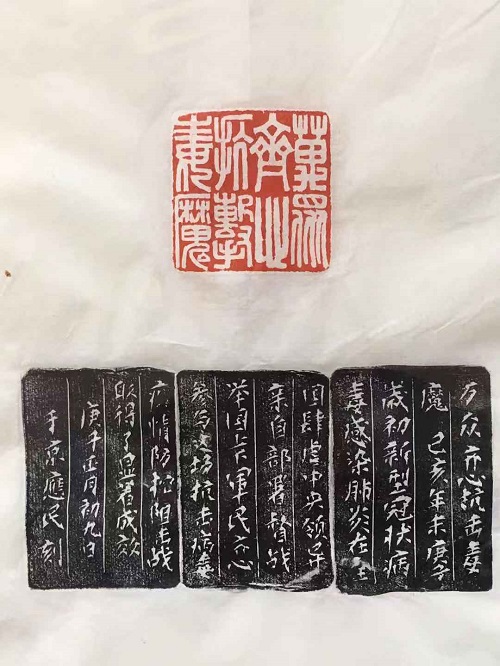 萬眾
齊心
抗擊
毒魔
万众齐心抗击毒
魔 己亥年末庚子
歲初新型冠状病
毒感染肺炎在全
国肆虐中央领导
亲自部署督战
举国上下軍民齐心
参与这场抗击病毒
疫情防控阻击战
取得了显著成效
庚子正月初九日
于京應民刻